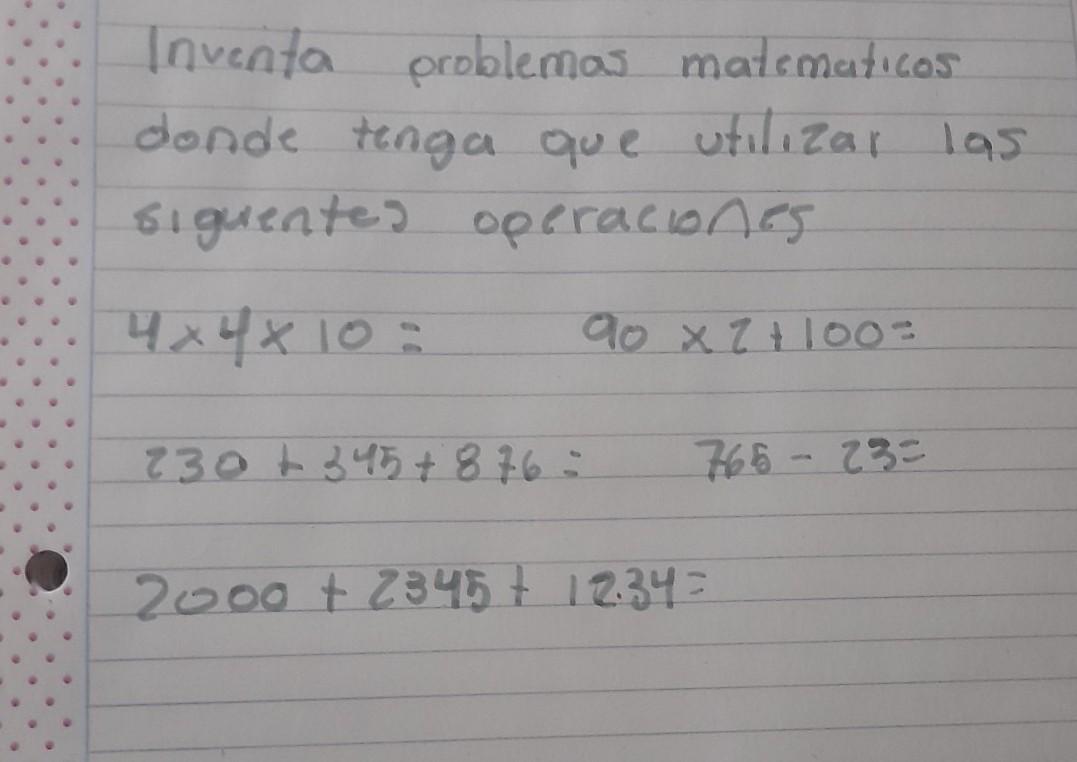 Inventa problemas matematicos
donde tenga que utilizar las
siguentes operaciones
4 x 4 x 10 = 90 x 2 + 100 =
230 + 345 + 876 = 765 - 23 =
2000 + 2345 + 12.34 =